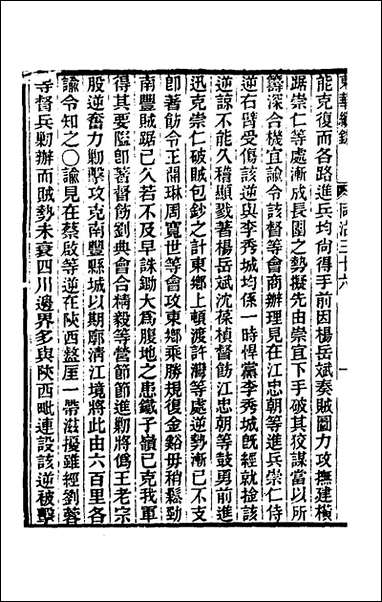 東華續錄 同治三十六
能克復而各路進兵均尙得手前因楊岳斌奏賊圖力攻撫建橫
踞崇仁等處漸成長圍之勢擬先由崇宜下手破其狡謀當以所
籌深合機宜諭令該督等會商辦理見在江忠朝等進兵崇仁侍
逆右臂受傷該逆與李秀城均係一時悍黨李秀城旣經就捡該
逆諒不能久稽顯戮著楊岳斌沈葆楨督飭江忠朝等鼓勇前進
迅克崇仁破賊包鈔之計東鄉上頓渡許灣等處逆勢漸已不支
卽著飭令王開琳周寬世等會攻東鄉乘勝規復金谿毋稍鬆勁
南豐賊踞已久若不及早誅鋤大爲腹地之患鐵子嶺已克我軍
得其要隘卽著督飭劉典會合精毅等營節節進剿將僞王老宗
股逆奮力剿擊攻克南豐縣城以期廓清江境將此由六百里各
諭令知之〇諭見在蔡啟等逆在陝西盩厔一帶滋擾雖經劉蓉
等督兵剿辦而賊勢未衰四川邊界多與陝西毗連設該逆被擊